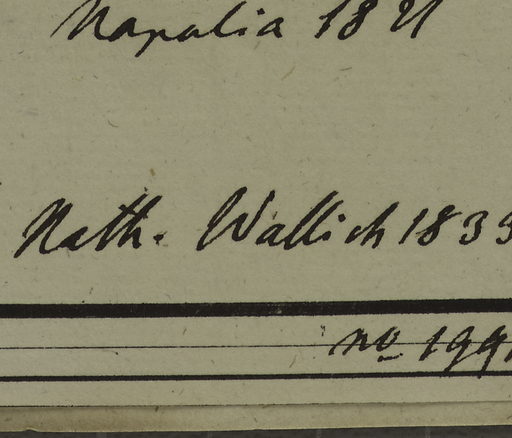 Napalia 1821
Nath. Wallich 1833
no 1991